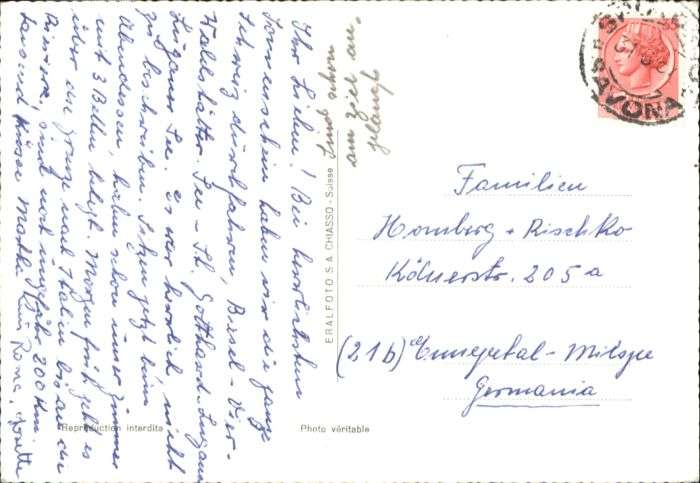 Ihr Lieben! Bei herrlichstem
Sonnenschein haben wir die ganze
Schweiz durchfahren, Basel - Vier-
waldstätter See - St. Gotthard - Lugano
Luganer See. es war herrlich, nicht
zu beschreiben. Sitzen jetzt beim
Abendessen, haben schon unser Zimmer
mit 3 Betten belegt. Morgen früh geht es
über die Grenze nach Italien bis an die
Riviera, sind noch ungefähr 200 km
tausend Küsse
sind schon
am Ziel an-
gelangt
ERALFOTO S.A CHIASSO - Suisse
Familien
Homberg - Rischko
Kölnerstr. 205a
(21b) Ennepetal - Milspe
Germania
Reproduction interdite
Photo véritable
SAVONA